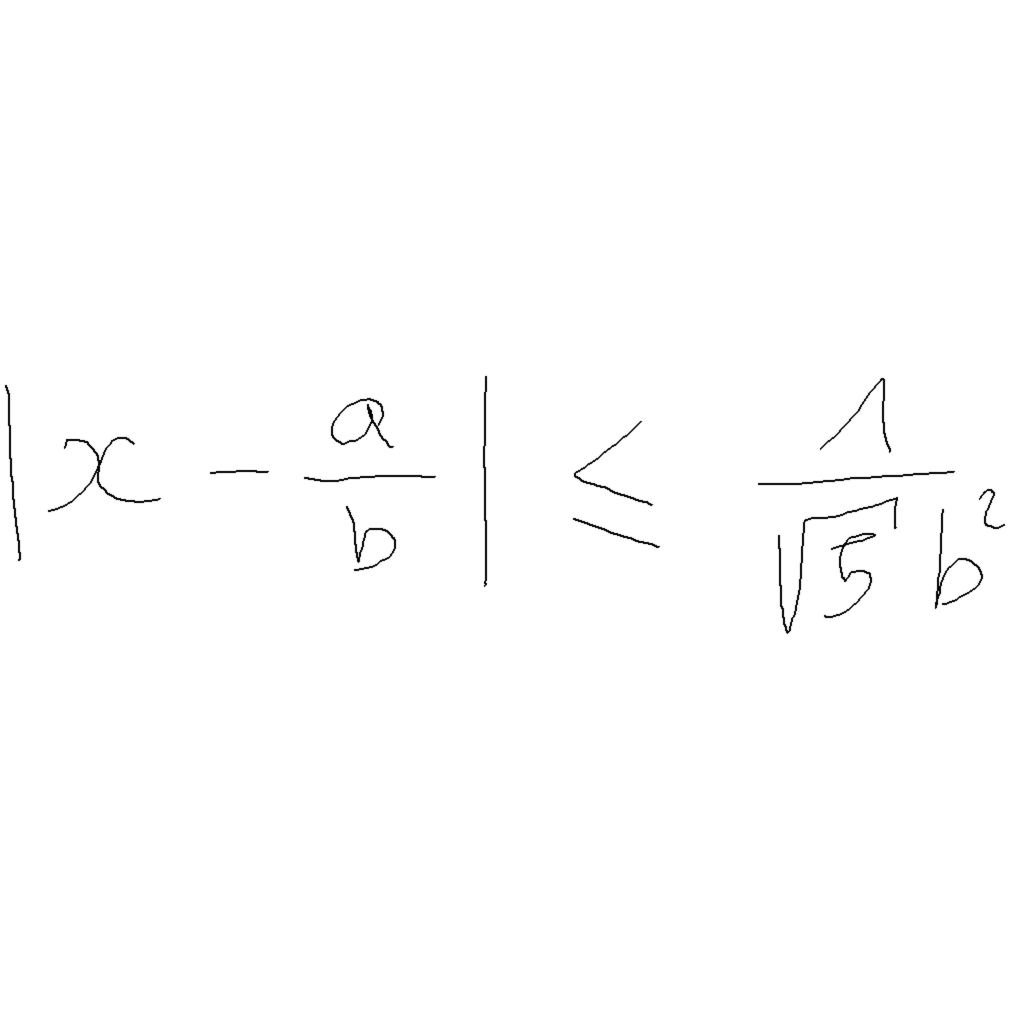 $\left| x - \frac{a}{b} \right| \leq \frac{1}{\sqrt{5} b^2}$